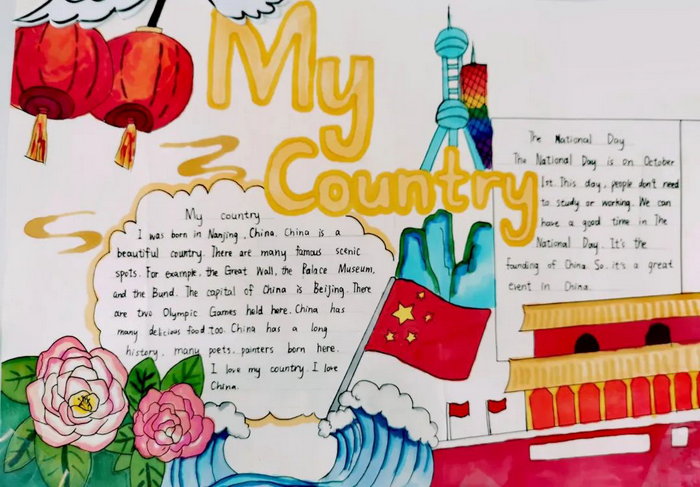 My
Country
My country
I was born in Nanjing, China. China is a
beautiful country. There are many famous scenic
spots. For example, the Great Wall, the Palace Museum,
and the Bund. The capital of China is Beijing. There
are two Olympic Games held here. China has
many delicious food too. China has a long
history, many poets, painters born here.
I love my country. I love
China.
The National Day
The National Day is on October
1st. This day, people don't need
to study or working. We can
have a good time in The
National Day. It's the
founding of China. So, it's a great
event in China.